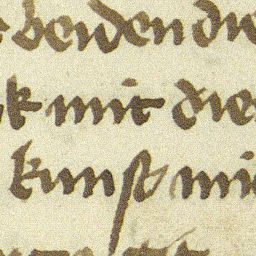 beiden die
mit die
kunst mi